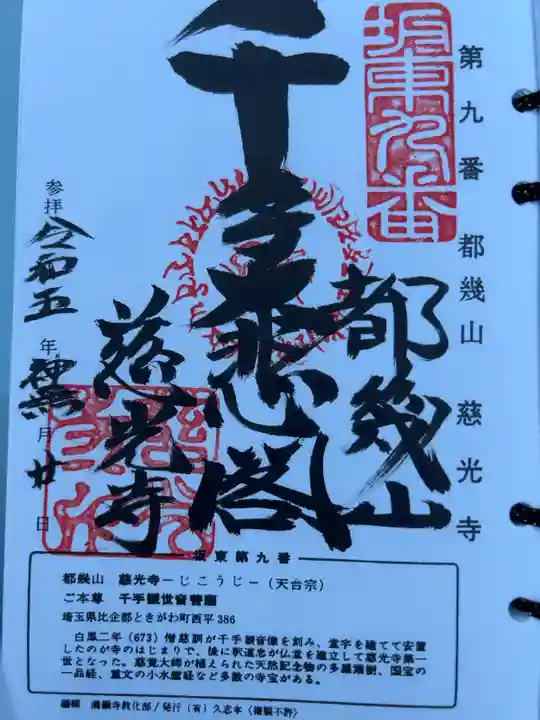 第九番 都幾山 慈光寺
坂東九番
都幾山
千手大悲閣
慈光寺
参拝 令和五年 月廿日
坂東第九番
都幾山 慈光寺−じこうじ−（天台宗）
ご本尊 千手観世音菩薩
埼玉県比企郡ときがわ町西平386
白鳳二年（673）僧慈訓が千手観音像を刻み、堂宇を建てて安置
したのが寺のはじまりで、後に釈道忠が仏堂を建立して慈光寺第一
世となった。慈覚大師が植えられた天然記念物の多羅葉樹、国宝の
一品経、重文の小水麿経など多数の寺宝がある。
編輯 満願寺教化部／発行（有）久志本〈複製不許〉